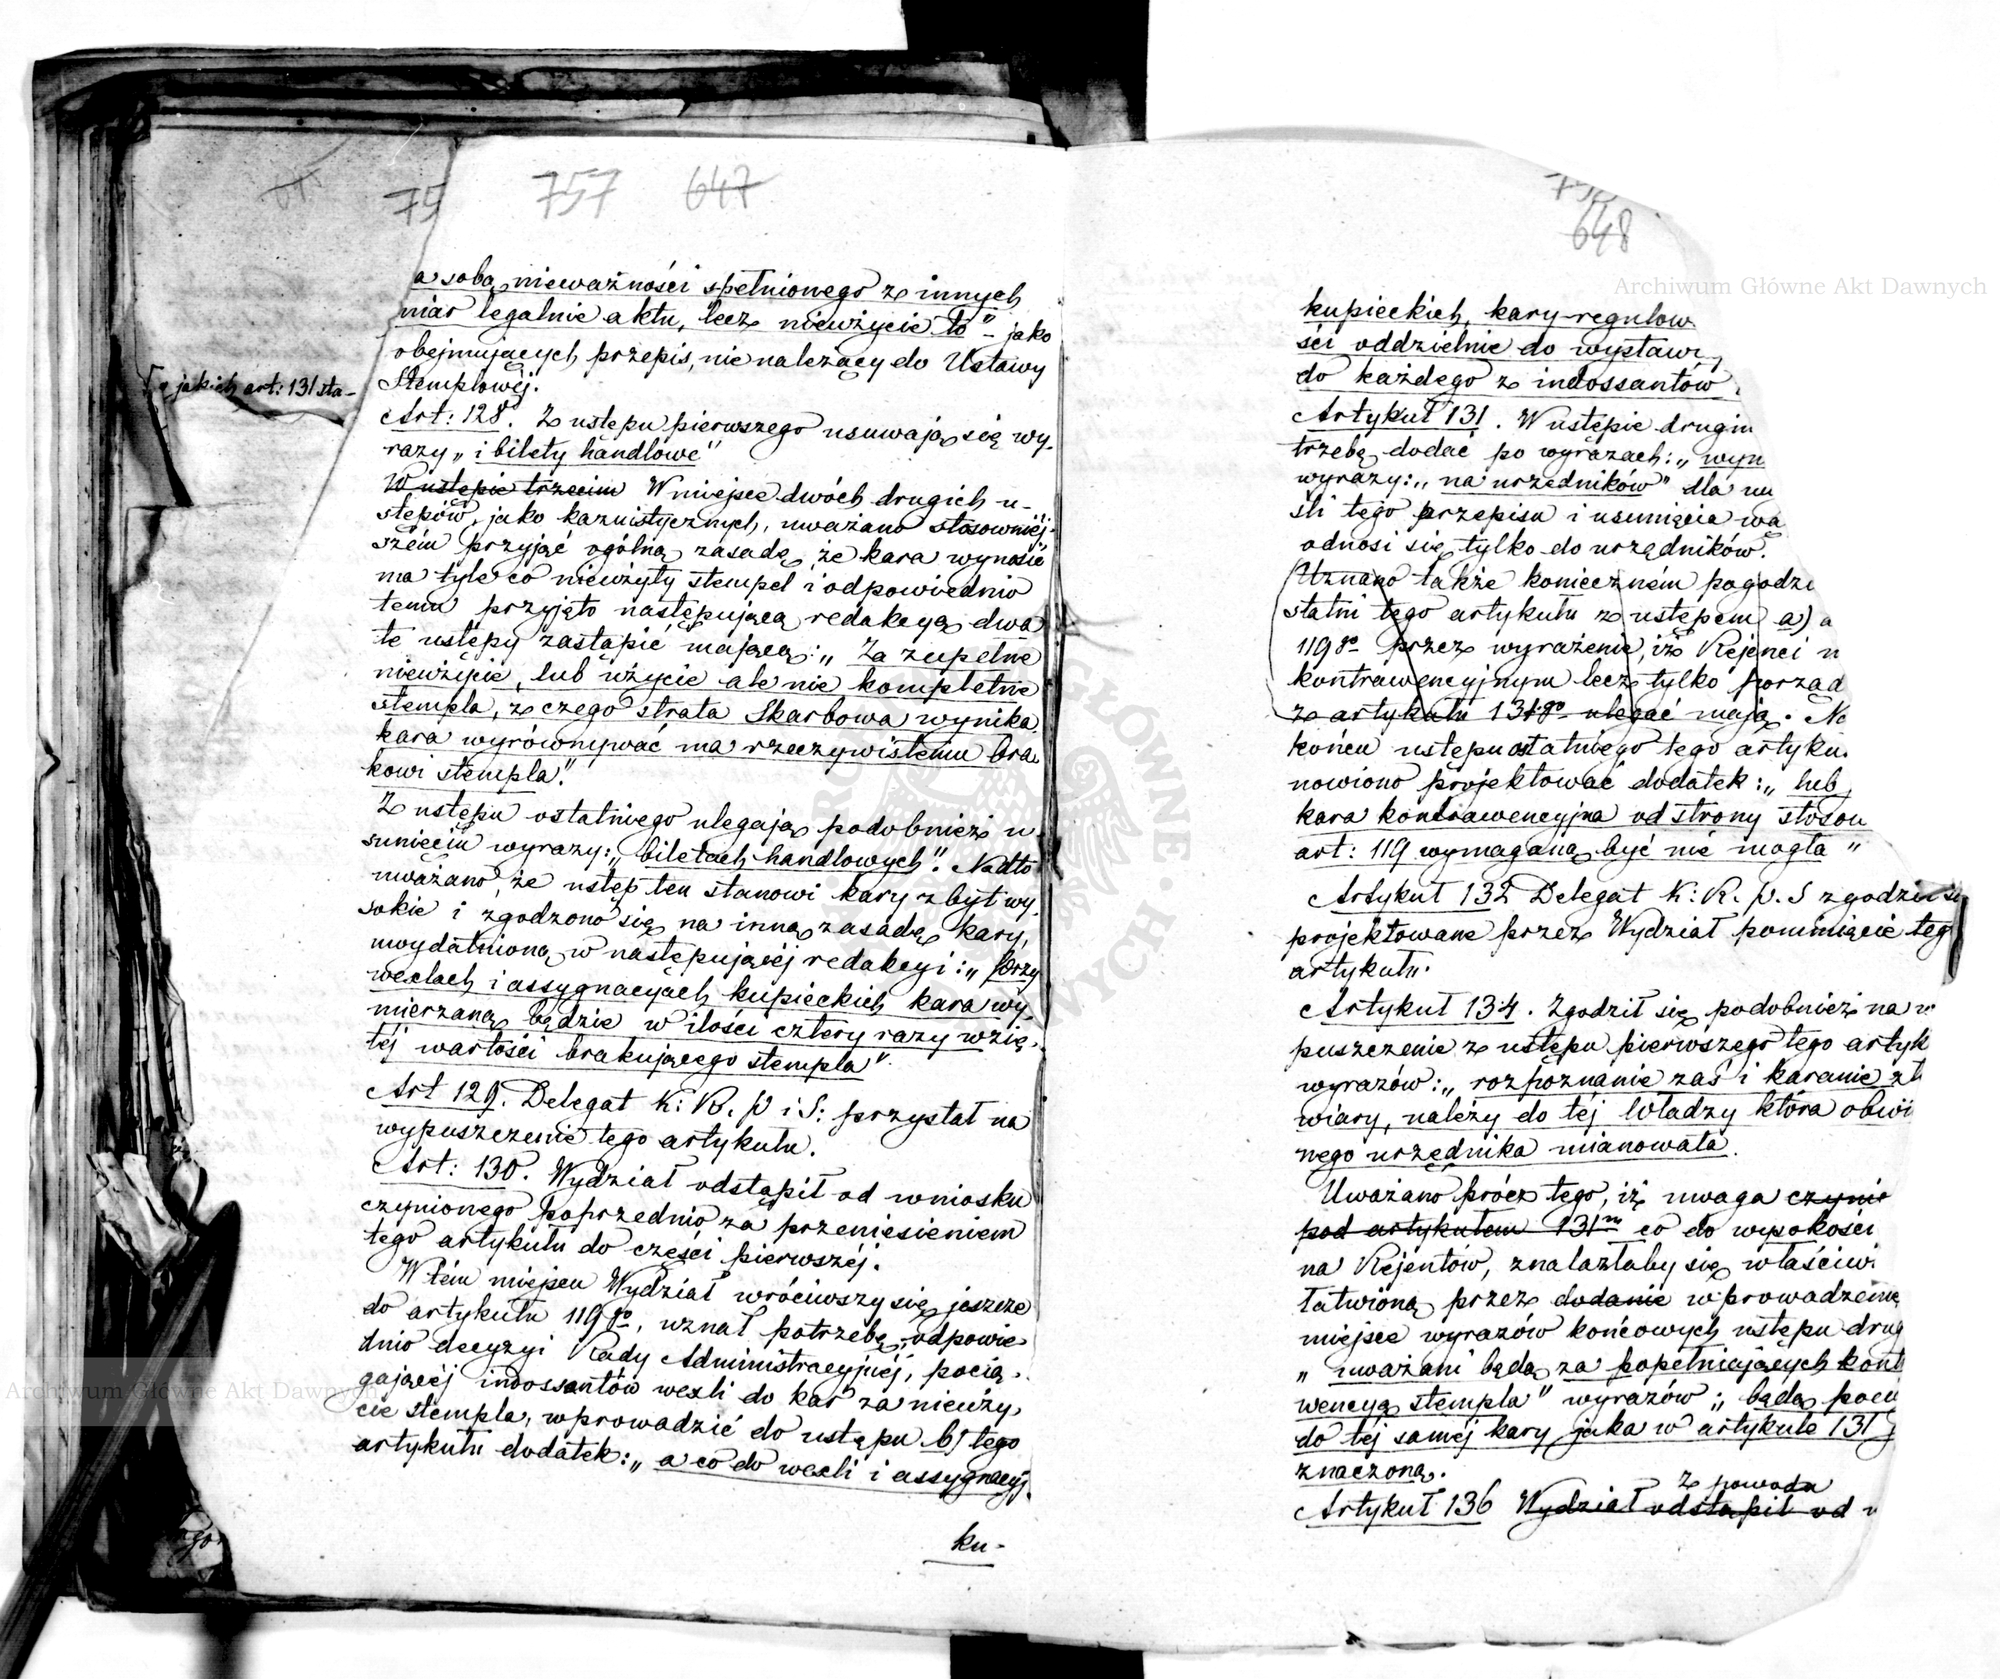 75 757 647
a sobą nieważności spełnionego z innych
miar legalnie aktu, lecz nieużycie to" – jako
obejmujących przepis, nie należący do Ustawy
Stemplowéj.
jakich art: 131 sta-
Art: 128. Z ustępu pierwszego usuwają się wy-
razy „i bilety handlowe"
W ustępie trzecim W miejsce dwóch drugich u-
stępów, jako kazuistycznych, uważano stosowniéj-
szém przyjąć ogólną zasadę, że kara wynosić
ma tyle co nieużyty stempel i odpowiednio
temu przyjęto następującą redakcyą dwa
te ustępy zastąpić mającą: „Za zupełne
nieużycie, lub użycie ale nie kompletne
stempla, z czego strata Skarbowa wynika
kara wyrównywać ma rzeczywistemu bra-
kowi stempla".
Z ustępu ostatniego ulegają podobnież u-
sunięciu wyrazy: „biletach handlowych". Nadto
uważano, że ustęp ten stanowi kary zbyt wy-
sokie i zgodzono się na inną zasadę kary,
uwydatnioną w następującéj redakcyi: „przy
wexlach i assygnacyach kupieckich kara wy-
mierzaną będzie w ilości cztery razy wzię-
téj wartości brakującego stempla".
Art 129. Delegat K: R. P i S: przystał na
wypuszczenie tego artykułu.
Art: 130. Wydział odstąpił od wniosku
czynionego poprzednio za przeniesieniem
tego artykułu do części pierwszéj.
W tém miejscu Wydział wróciwszy się jeszcze
do artykułu 119go, uznał potrzebę, odpowie-
dnio decyzyi Rady Administracyjnéj, pocią-
gającéj indossantów wexli do kar za nieuży-
cie stempla, wprowadzić do ustępu b) tego
artykułu dodatek: „a co do wexli i assygnacyj
ku-
648
kupieckich, kary regulow
ści oddzielnie do wystawi
do każdego z indossantów
Artykuł 131. W ustępie drugim
trzeba dodać po wyrazach: „wyn
wyrazy: „na urzędników" dla uu
śli tego przepisu i usunięcia wą
odnosi się tylko do urzędników.
Uznano także konieczném pogodzi
statni tego artykułu z ustępem a) a
119go przez wyrażenie, iż Rejenci n
kontrawencyjnym lecz tylko porząd
z artykułu 131go ulegać mają. Na
końcu ustępu ostatniego tego artyku.
nowiono projektować dodatek: „lub
kara kontrawencyjna od strony stosou
art: 119 wymaganą być nie mogła"
Artykuł 132 Delegat K: R. P. S zgodził si
projektowane przez Wydział pominięcie teg
artykułu.
Artykuł 134. Zgodził się podobnież na w
puszczenie z ustępu pierwszego tego artyk
wyrazów: „rozpoznanie zaś i karanie zł
wiary, należy do téj Władzy która obwi
nego urzędnika mianowała.
Uważano prócz tego, iż uwaga czynio
pod artykułem 131m co do wysokości
na Rejentów, znalazłaby się właściwi
łatwioną przez dodanie wprowadzenie
miejsce wyrazów końcowych ustępu drug
„uważani będą za popełniających kont
wencyą stempla" wyrazów „będą pocią
do téj saméj kary jaka w artykule 131
znaczona.
Z powodu
Artykuł 136 Wydział odstąpił od
Archiwum Główne Akt Dawnych
Archiwum Główne Akt Dawnych